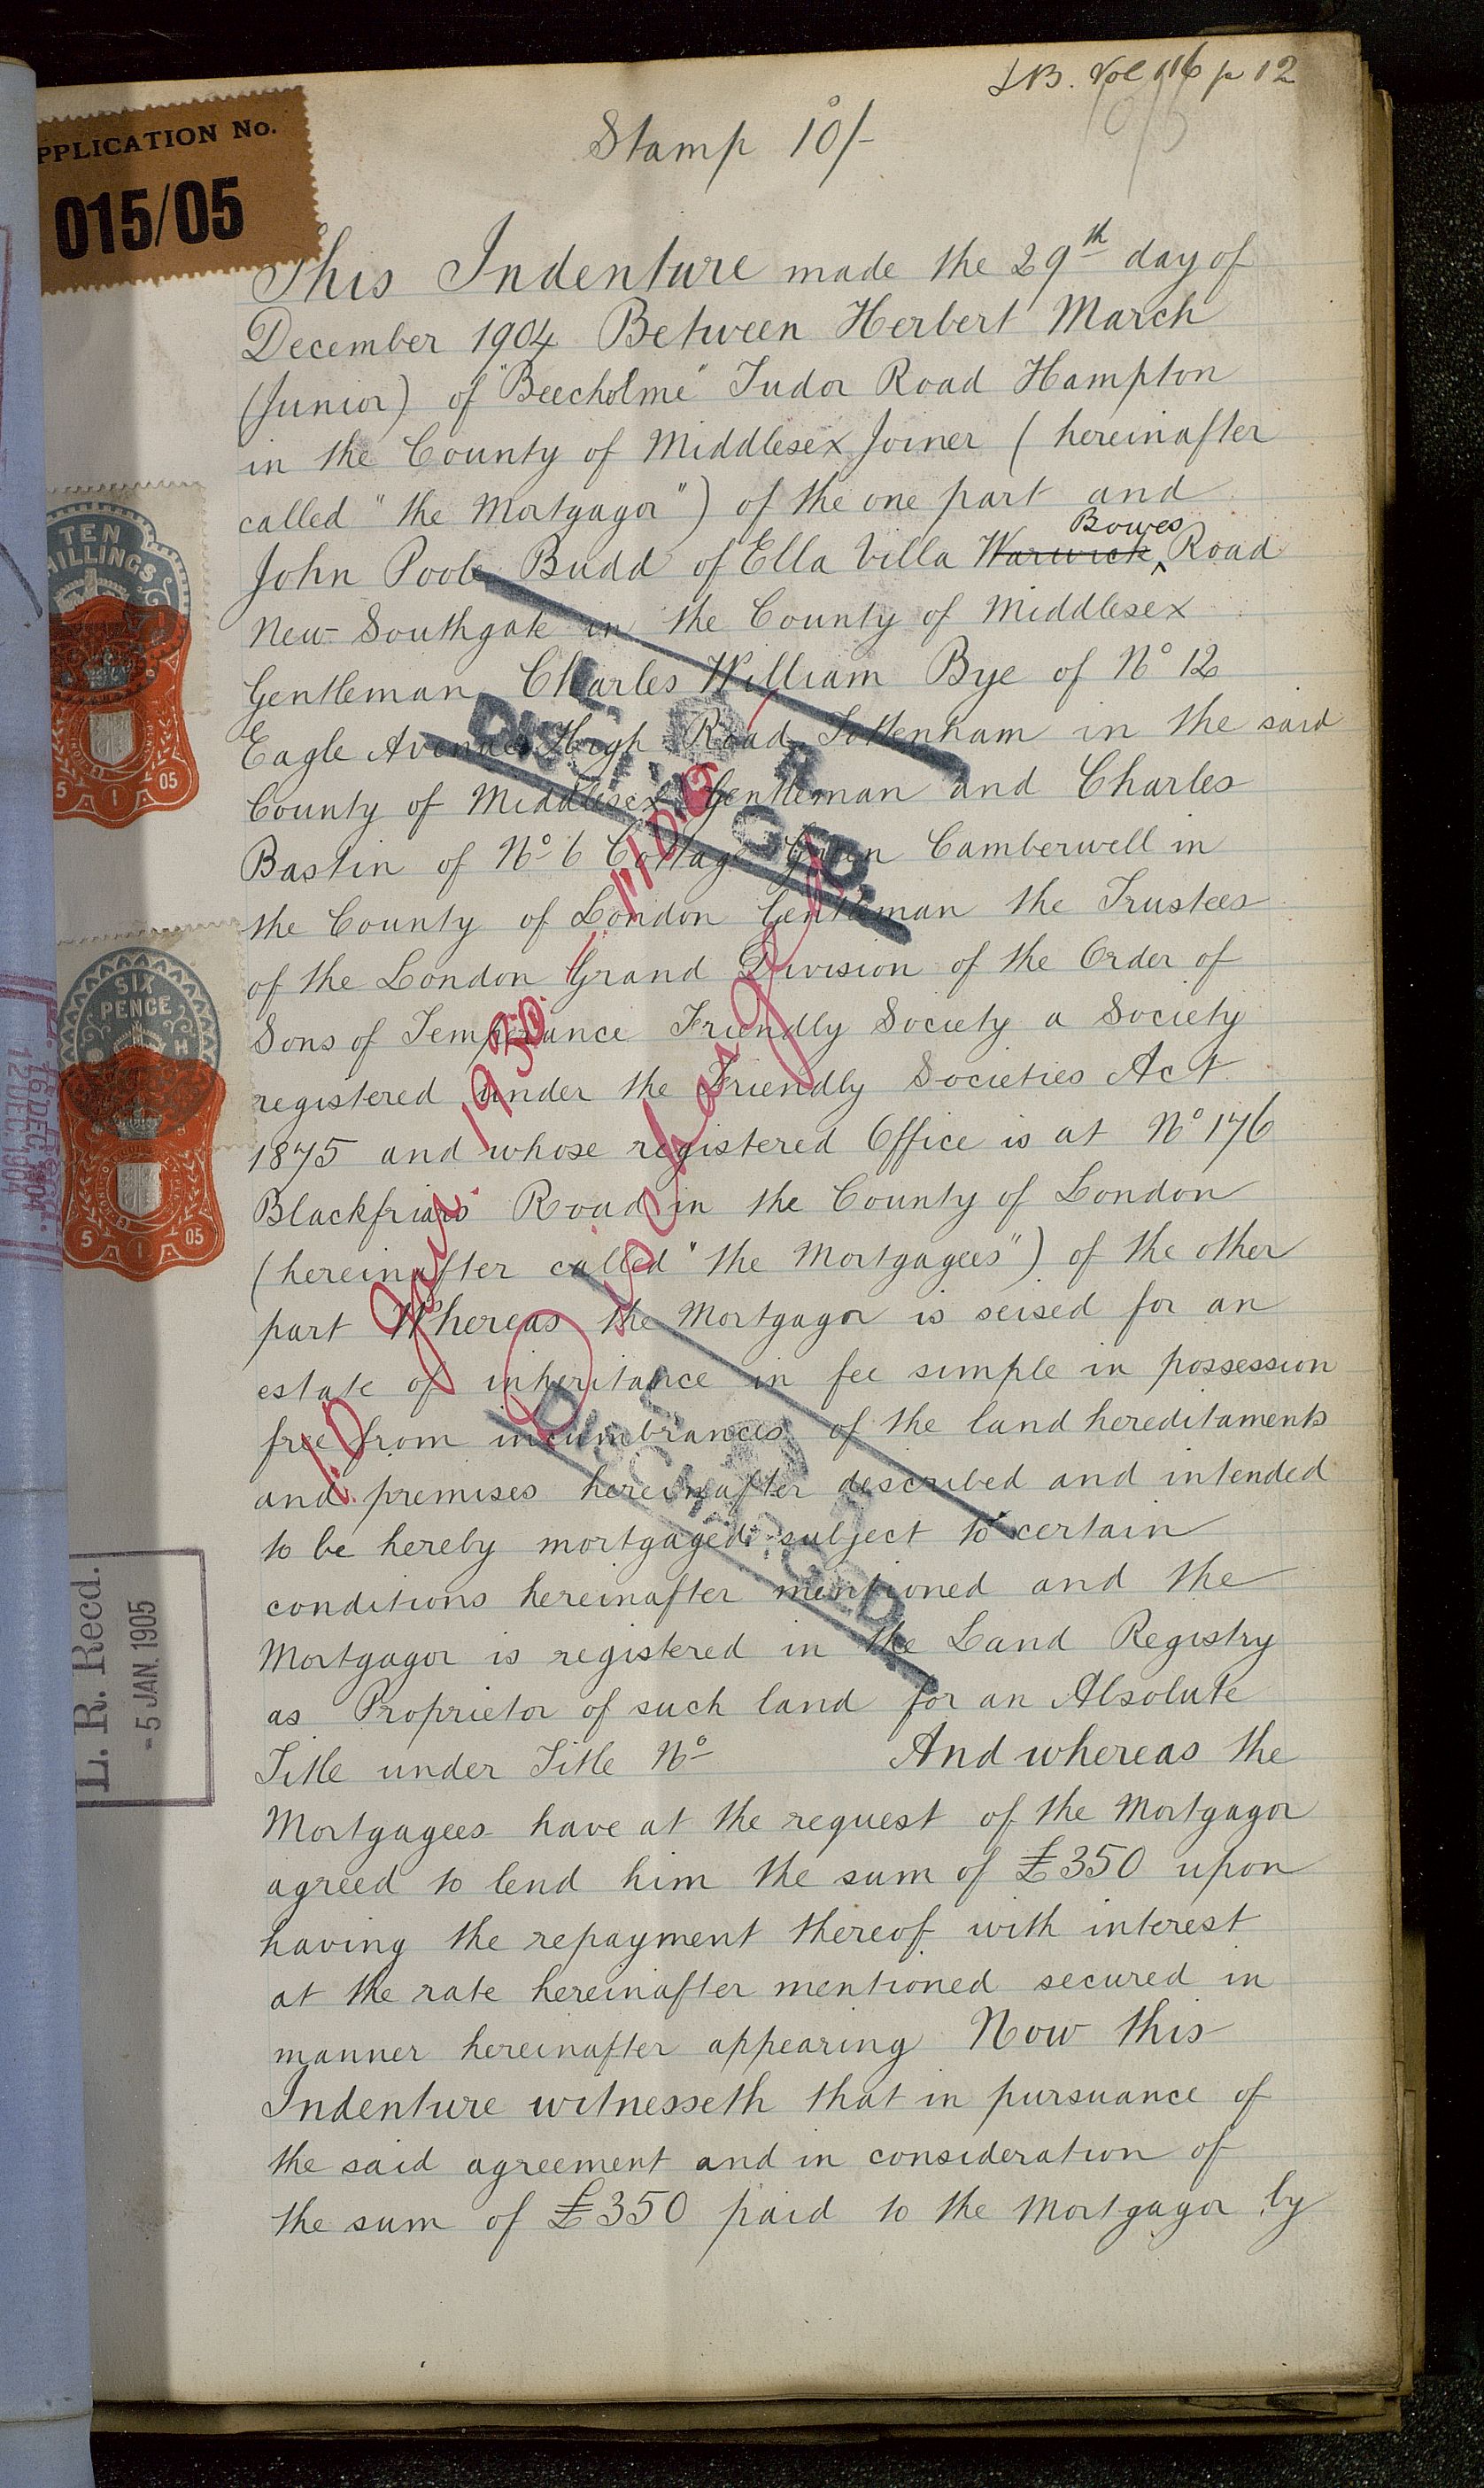 LB. Vol 116 p 12
Stamp 10/-
PPLICATION No.
015/05
This Indenture made the 29th day of
December 1904 Between Herbert March
(Junior) of "Beecholme" Tudor Road Hampton
in the County of Middlesex Joiner (hereinafter
called "the Mortgagor") of the one part and
Bowes
John Poole Budd of Ella Villa Warwick Road
New Southgate in the County of Middlesex
Gentleman Charles William Bye of No 12
Eagle Avenue High Road Tottenham in the said
County of Middlesex Gentleman and Charles
Bastin of No 6 Cottage Green Camberwell in
the County of London Gentleman the Trustees
of the London Grand Division of the Order of
Sons of Temperance Friendly Society a Society
registered under the Friendly Societies Act
1875 and whose registered Office is at No 176
Blackfriars Road in the County of London
(hereinafter called "the Mortgagees") of the other
part Whereas the Mortgagor is seised for an
estate of inheritance in fee simple in possession
free from incumbrances of the land hereditaments
and premises hereinafter described and intended
to be hereby mortgaged subject to certain
conditions hereinafter mentioned and the
Mortgagor is registered in the Land Registry
as Proprietor of such land for an Absolute
Title under Title No And whereas the
Mortgagees have at the request of the Mortgagor
agreed to lend him the sum of £350 upon
having the repayment thereof with interest
at the rate hereinafter mentioned secured in
manner hereinafter appearing Now this
Indenture witnesseth that in pursuance of
the said agreement and in consideration of
the sum of £350 paid to the Mortgagor by
TEN
HILLINGS
5 I 05
SIX
PENCE
5 I 05
16 DEC. 1904
12 DEC. 1904
L. R. Recd.
- 5 JAN. 1905
DISCHARGED.
DISCHARGED.
Discharged
10 Jan. 1930